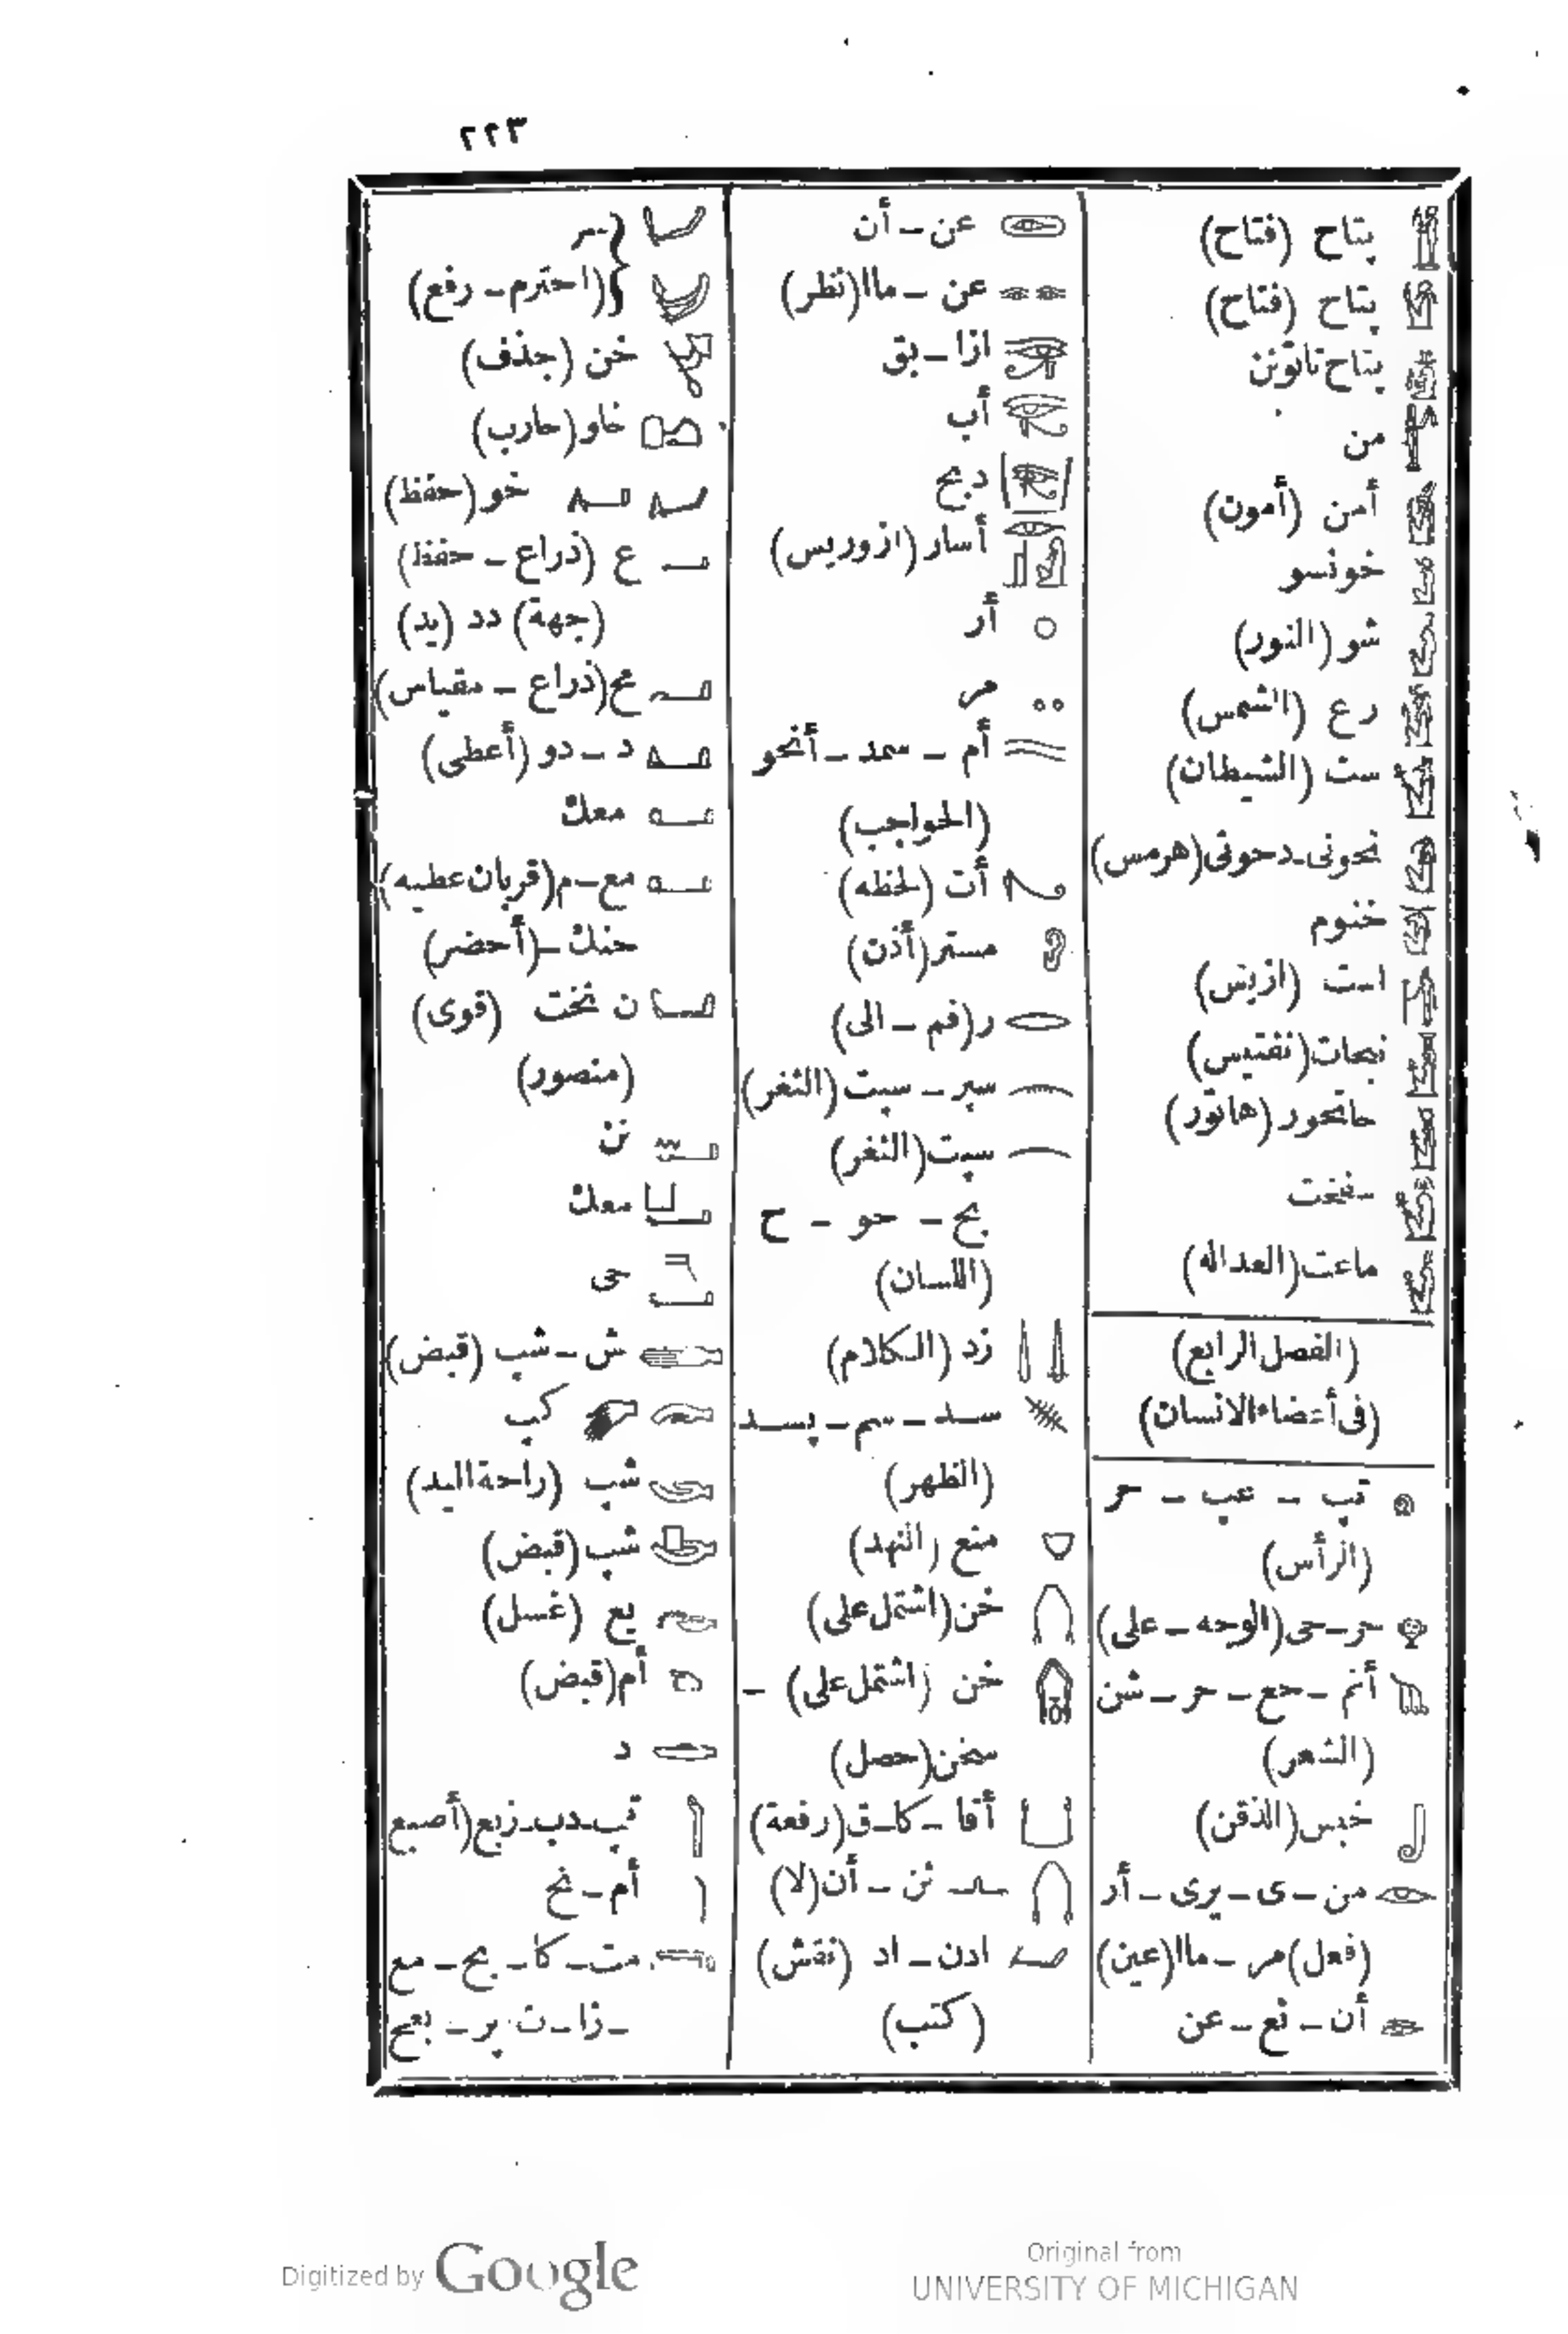 ٢٢٣
پتاح (فتاح)
پتاح (فتاح)
پتاح تاتونن
من
أمن (أمون)
خونسو
شو (النور)
رع (الشمس)
ست (الشيطان)
تحوتى ـ دحوتى (هرمس)
خنوم
است (ازيس)
نبحات (نفتيس)
حاتحور (هاتور)
سفخت
ماعت (العداله)
(الفصل الرابع)
(فى أعضاء الانسان)
تپ ـ عپ ـ حر
(الرأس)
حر ـ حى (الوجه ـ على)
أنم ـ حع ـ حر ـ شن
(الشعر)
خبس (الذقن)
من ـ ى ـ يرى ـ أر
(فعل) مر ـ ماا (عين)
أن ـ نع ـ عن
عن ـ أن
عن ـ ماا (نظر)
ازا ـ بق
أب
دبح
أسار (ازوريس)
أر
مر
أم ـ سمد ـ أنحو
(الحواجب)
أت (لحظه)
مستر (أذن)
ر (فم ـ الى)
سپر ـ سپت (الثغر)
سپت (الثغر)
بح ـ حو ـ ح
(اللسان)
زد (الكلام)
سد ـ سم ـ پسد
(الظهر)
منع (النهد)
خن (اشتمل على)
خن (اشتمل على) ـ
سخن (حصل)
أقا ـ كا ـ ق (رفعة)
نن ـ أن (لا)
ادن ـ اد (نقش)
(كتب)
(احترم ـ رفع)
خن (جذف)
خاو (حارب)
خو (حفظ)
ع (ذراع ـ حفظ)
(جهة) دد (يد)
مح (ذراع ـ مقياس)
د ـ دو (أعطى)
معك
مع ـ م (قربان عطيه)
حنك ـ (أحضر)
ن نخت (قوى)
(منصور)
نن
معك
حى
ش ـ شپ (قبض)
كپ
شپ (راحة اليد)
شپ (قبض)
يع (غسل)
أم (قبض)
د
تپ ـ دب ـ زبع (أصبع
أم ـ نح
مت ـ كا ـ بح ـ مع
ـ زا ـ ت پر ـ بعح
Digitized by Google
Original from
UNIVERSITY OF MICHIGAN